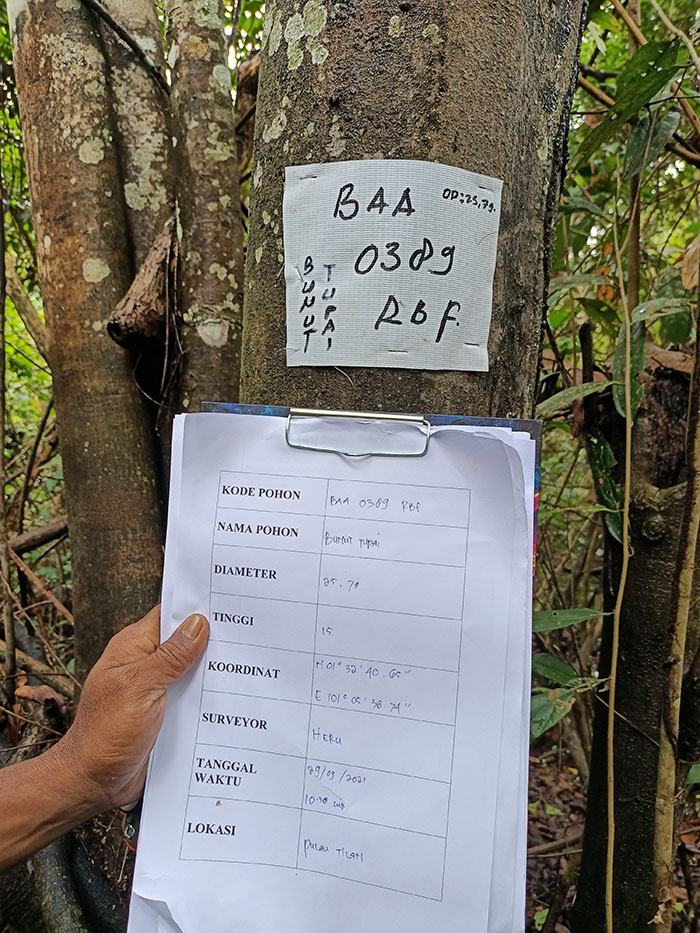 BAA
OP:25,79.
0389
BUNUT
TUPAI
RBF.
KODE POHON BAA 0389 RBF
NAMA POHON BUNUT TUPAI
DIAMETER 25,79
TINGGI 15
KOORDINAT N 01° 32' 40.65"
E 101° 05' 38 74"
SURVEYOR HERU
TANGGAL 29/09/2021
WAKTU
LOKASI PULAU TILAN